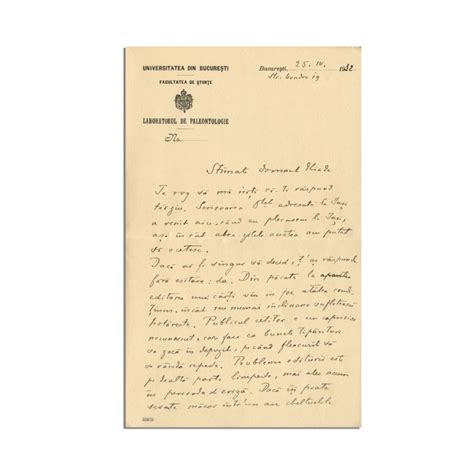 UNIVERSITATEA DIN BUCUREȘTI
FACULTATEA DE ȘTIINȚE
LABORATORUL DE PALEONTOLOGIE
No.
București, 25. IV. 1932
Str.
Stimate domnule Eliade
Te rog să mă ierți că-ți răspund
târziu. Scrisoarea adresată la Iași
a venit aici, când eu plecasem la Iași,
așa în cât abea zilele acestea am putut
s'o citesc.
Dacă aș fi singur să decid, ți-aș răspunde
fără ezitare: da. Din păcate la apariția
editarea unei cărți vin în joc atâtea condi-
țiuni, încât nu numai înclinarea sufletească
hotărește. Publicul cetitor e un capriciu
necunoscut, care face ca bunele tipărituri
să zacă în depozit, pe când fleacurile să
se vândă repede. Problema editurii este
pe de altă parte limpede, mai ales acum
în perioada de criză. Dacă își poate
scoate măcar într'un an cheltuelile